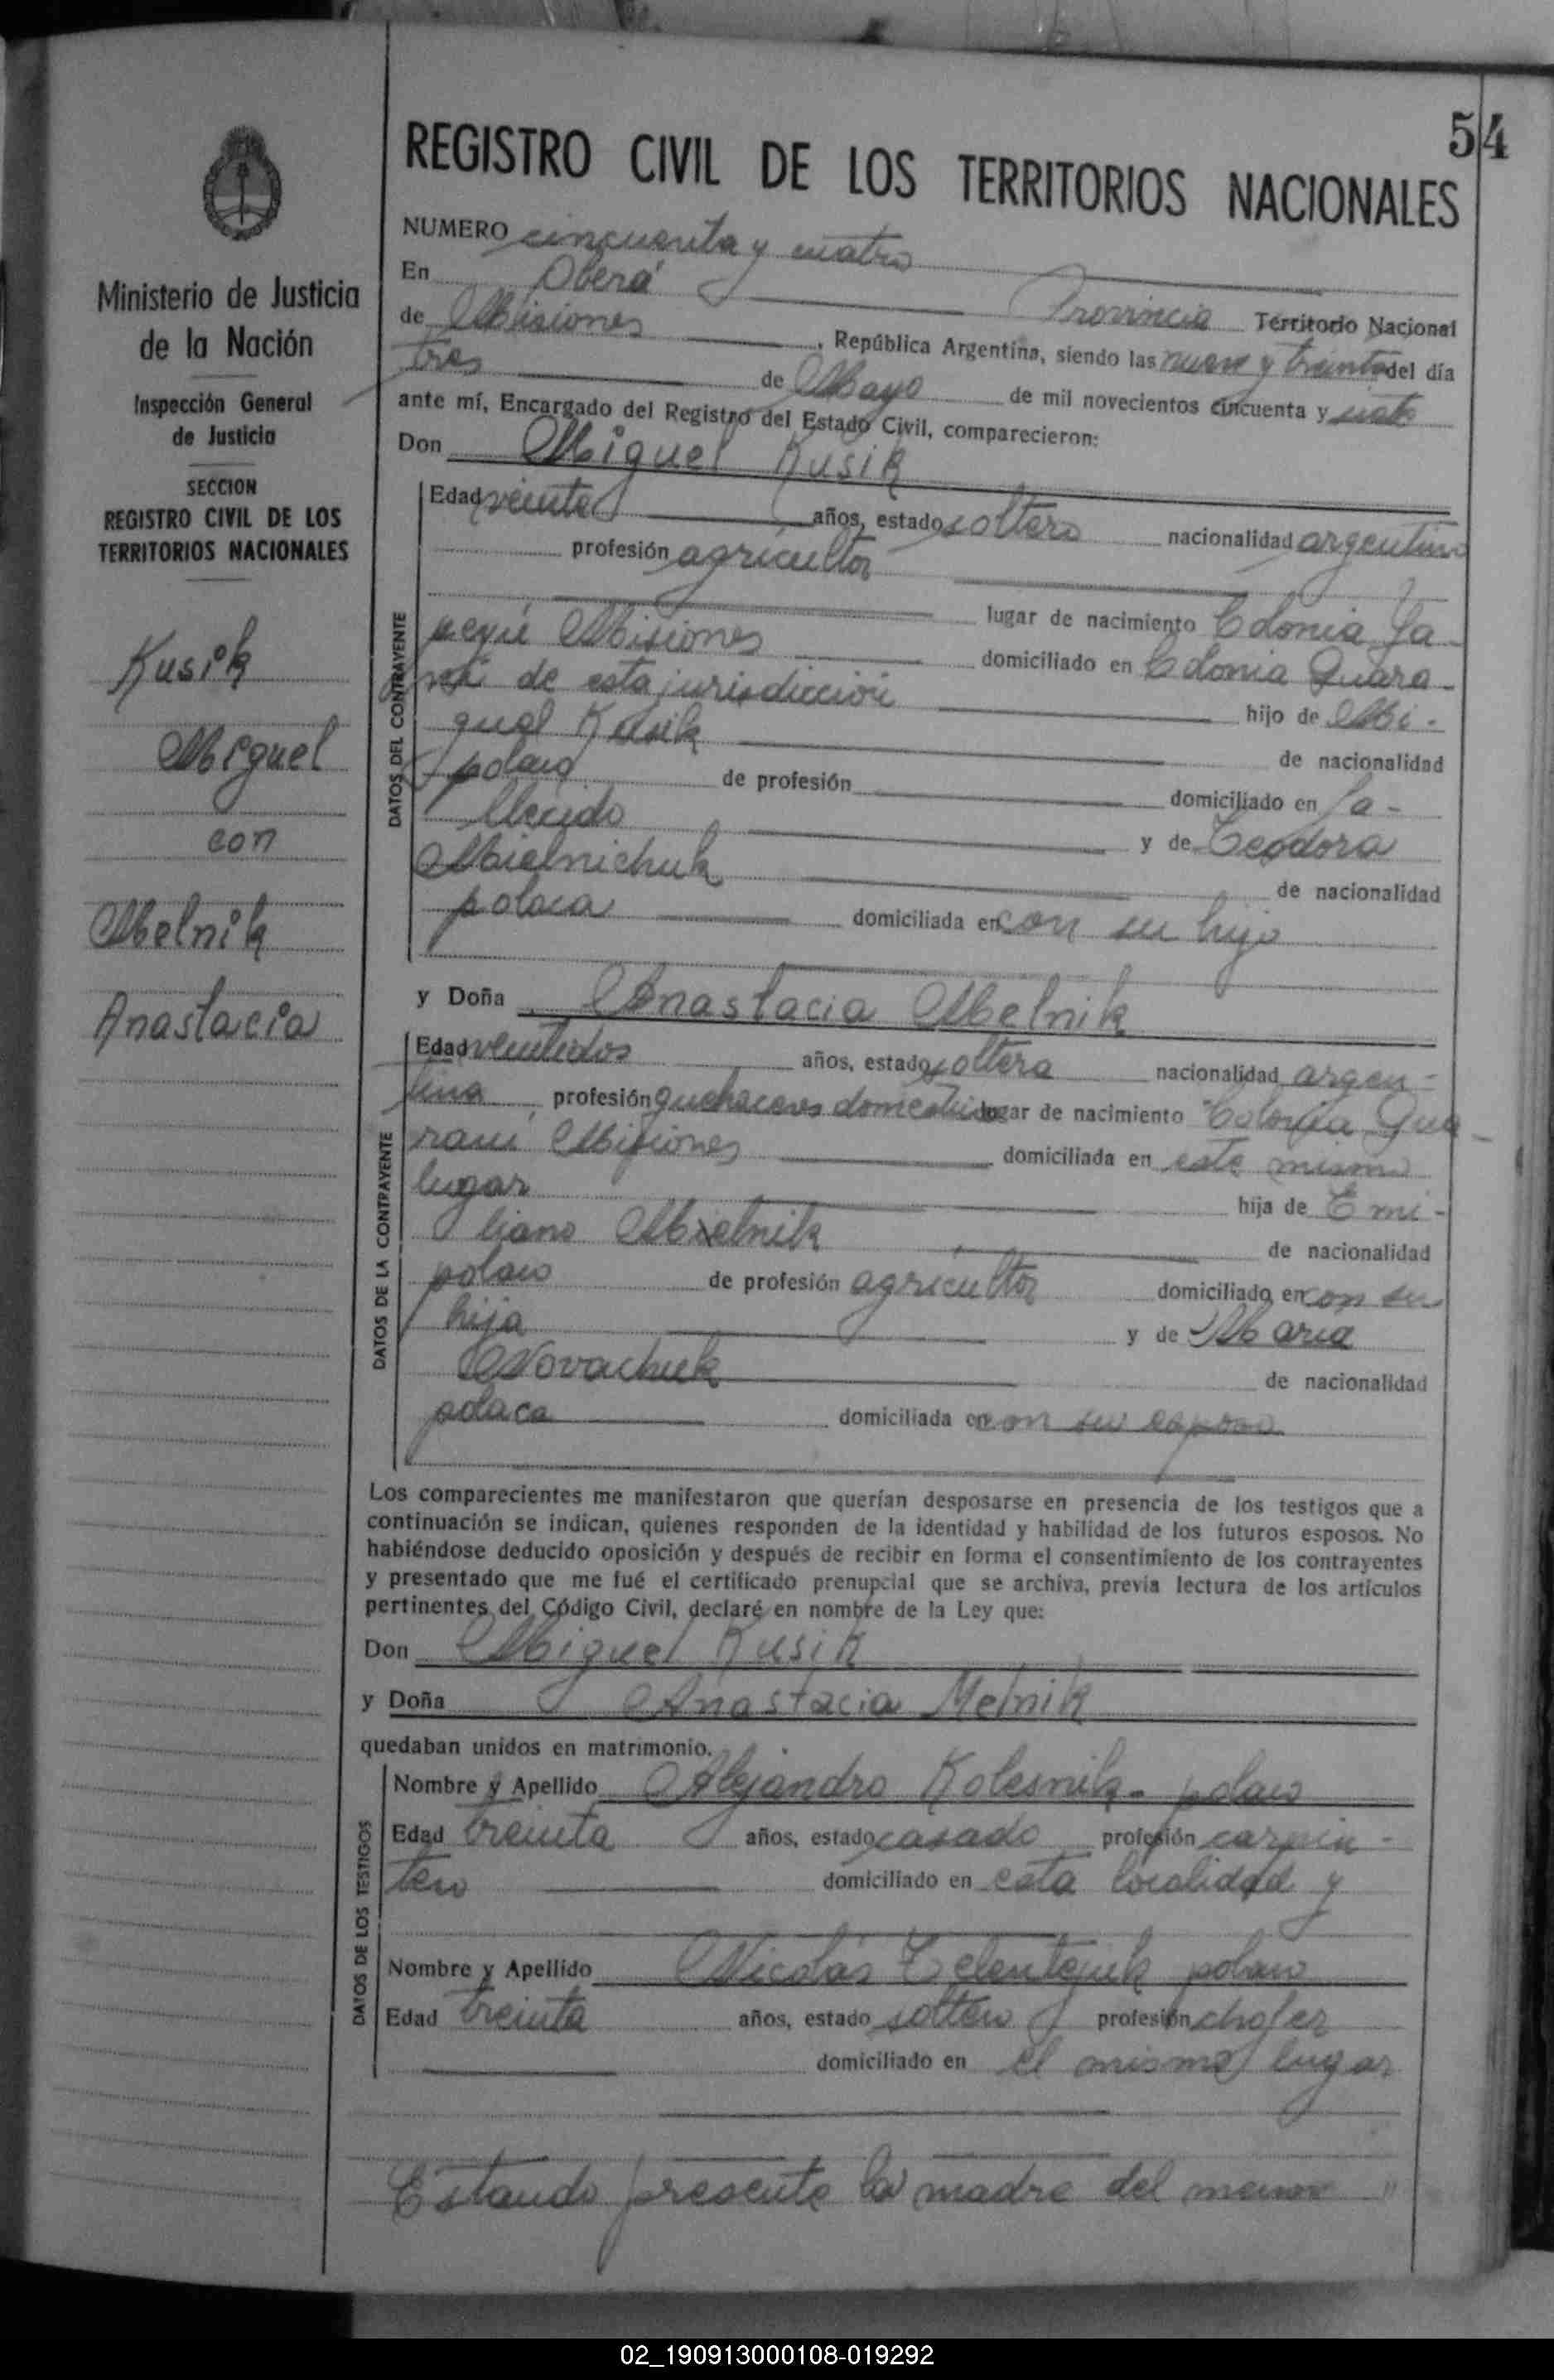 54
REGISTRO CIVIL DE LOS TERRITORIOS NACIONALES
Ministerio de Justicia
de la Nación
Inspección General
de Justicia
SECCION
REGISTRO CIVIL DE LOS
TERRITORIOS NACIONALES
Kusik
Miguel
con
Melnik
Anastacia
NUMERO cincuenta y cuatro
En Oberá Provincia Territorio Nacional
de Misiones, República Argentina, siendo las nueve y treinta del día
tres de Mayo de mil novecientos cincuenta y siete
ante mí, Encargado del Registro del Estado Civil, comparecieron:
Don Miguel Kusik
DATOS DEL CONTRAYENTE
Edad veinte años, estado soltero nacionalidad argentino
profesión agricultor
lugar de nacimiento Colonia Ya-
peyú Misiones domiciliado en Colonia Guara-
ní de esta jurisdicción hijo de Mi-
guel Kusik de nacionalidad
polaco de profesión domiciliado en fa-
llecido y de Teodora
Mielnichuk de nacionalidad
polaca domiciliada en con su hijo
y Doña Anastacia Melnik
DATOS DE LA CONTRAYENTE
Edad veintidos años, estado soltera nacionalidad argen-
tina profesión quehaceres domesticos lugar de nacimiento Colonia Gua-
raní Misiones domiciliada en este mismo
lugar hija de Emi-
liano Mielnik de nacionalidad
polaco de profesión agricultor domiciliado en con su
hija y de María
Novachuk de nacionalidad
polaca domiciliada en con su esposo
Los comparecientes me manifestaron que querían desposarse en presencia de los testigos que a
continuación se indican, quienes responden de la identidad y habilidad de los futuros esposos. No
habiéndose deducido oposición y después de recibir en forma el consentimiento de los contrayentes
y presentado que me fué el certificado prenupcial que se archiva, previa lectura de los artículos
pertinentes del Código Civil, declaré en nombre de la Ley que:
Don Miguel Kusik
y Doña Anastacia Melnik
quedaban unidos en matrimonio.
DATOS DE LOS TESTIGOS
Nombre y Apellido Alejandro Kolesnik - polaco
Edad treinta años, estado casado profesión carpin-
tero domiciliado en esta localidad y
Nombre y Apellido Nicolás polaco
Edad treinta años, estado soltero profesión chofer
domiciliado en el mismo lugar
Estando presente la madre del menor "
02_190913000108-019292